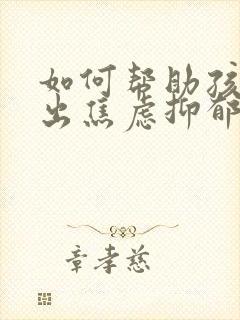 如何帮助孩
出焦虑抑郁
章孝慈